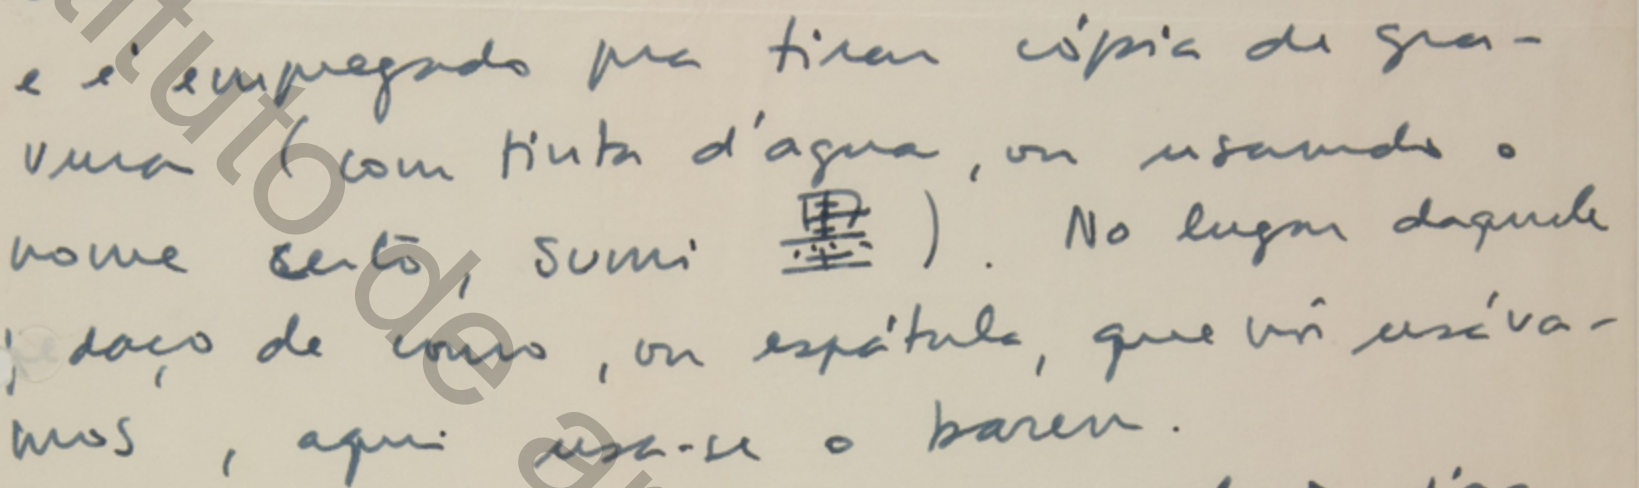 e é empregado pra tirar cópia de gra-
vura (com tinta d'água, ou usando o
nome certo, sumi 墨). No lugar daquele
pedaço de couro, ou espátula, que nós usáva-
mos, aqui usa-se o baren.